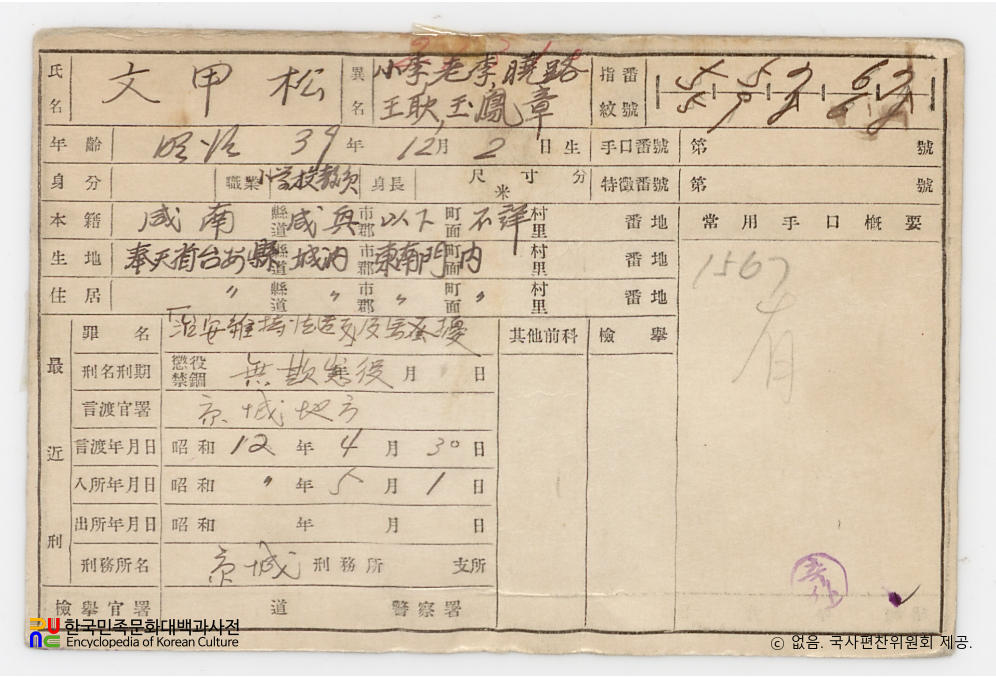 氏名 文甲松 異名 小李, 老李, 曉路 指紋番號
王耿, 玉鳳章
年齡 明治 39年 12月 2日生 手口番號 第 號
身分 職業 小學校教員 身長 尺寸分 米 特徵番號 第 號
本籍 咸南 縣道 咸興 市郡 以下 町面 不詳 村里 番地 常用手口概要
生地 奉天省台安 縣道 城內 市郡 東南門內 町面 村里 番地 1567
住居 〃 縣道 〃 市郡 〃 町面 〃 村里 番地 有
最近刑
罪名 治安維持法違反及騷擾 其他前科 檢擧
刑名刑期 懲役 禁錮 無欺懲役 月 日
言渡官署 京城地方
言渡年月日 昭和 12年 4月 30日
入所年月日 昭和 〃年 5月 1日
出所年月日 昭和 年 月 日
刑務所名 京城 刑務所 支所
檢擧官署 道 警察署
한국민족문화대백과사전
Encyclopedia of Korean Culture
© 없음. 국사편찬위원회 제공.